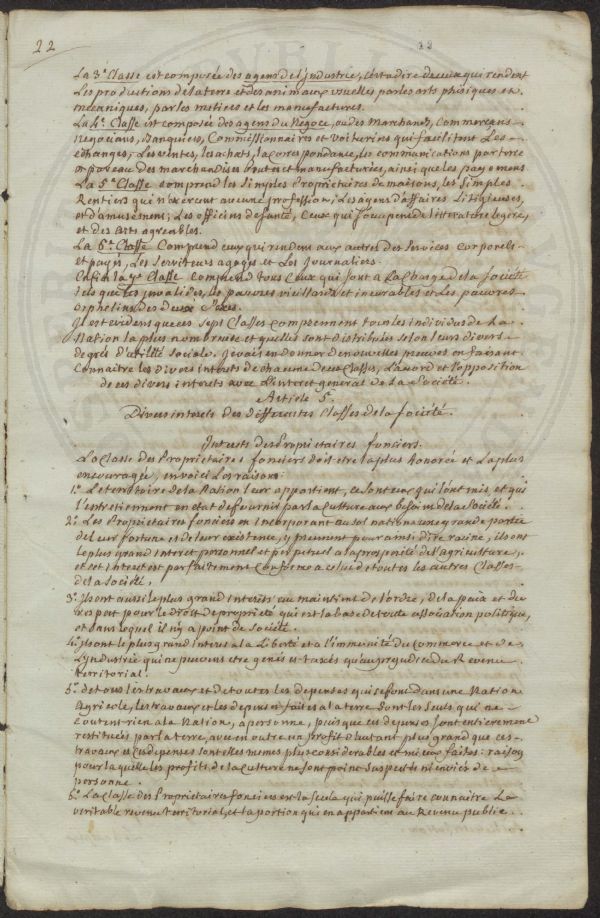 22
22
La 3e Classe est composée des agens de l'Industrie, c'est a dire de ceux qui rendent
Les productions de la terre et des animaux usuelles par les arts phisiques et
mecaniques, par les metiers et les manufactures.
La 4e Classe est composée des agens du Negoce, ou des Marchands, Commerçans
Negocians, Banquiers, Commissionnaires et Voituriers qui facilitent Les
echanges, Les ventes, les achats, la correspondance, les communications par terre
et par eau des marchandises brutes et manufacturées, ainsi que les payemens
La 5e Classe comprend les simples Proprietaires de maisons, les simples
Rentiers qui n'exercent aucune profession, Les agens d'affaires Litigieuses,
et d'amusement, Les officiers de santé, Ceux qui s'occupent de litterature legere,
et des arts agreables.
La 6e Classe Comprend ceux qui rendent aux autres des services corporels
et payés, Les serviteurs a gages et Les Journaliers.
Enfin la 7e Classe comprend tous Ceux qui sont a La charge de la Societé
tels que les invalides, les pauvres vieillards et incurables et Les pauvres
orphelins des deux Sexes.
Il est evident que ces Sept Classes comprennent tous les individus de La
Nation la plus nombreuse et qu'elles sont distribuées selon leurs divers
degrés d'utilité sociale. Je vais en donner de nouvelles preuves en faisant
Connaitre les divers interets de chacune de ces Classes, L'accord et l'opposition
de ces divers interets avec L'interet general de La Societé.
Article 5.
Divers interets des differentes Classes de la Societé.
Interets des Proprietaires fonciers.
La Classe des Proprietaires fonciers doit etre la plus honorée et La plus
encouragée, en voici Les raisons:
1.° Le territoire de la Nation leur appartient, ce sont eux qui l'ont mis, et qui
l'entretiennent en etat de fournir par la culture aux besoins de la Societé.
2.° Les Proprietaires fonciers en incorporant au sol national une grande partie
de leur fortune et de leur existence, y prennent pour ainsi dire racine, ils ont
le plus grand interet personnel et perpetuel a la prosperité de l'agriculture,
et cet interet est parfaitement conforme a celui de toutes les autres Classes
de la Societé,
3.° Ils ont aussi le plus grand interest au maintient de l'ordre, de la paix et du
respect pour le droit de proprieté qui est la base de toute association politique,
et sans lequel il n'y a point de Societé.
4.° Ils ont le plus grand interet a la Liberté et a l'immunité du Commerce et de
L'Industrie qui ne peuvent etre genés et taxés qu'au prejudice du Revenu
territorial.
5.° de tous les travaux et de toutes les depenses qui se font dans une Nation
Agricole, les travaux et les depenses faites a la terre sont les seuls qui ne
coutent rien a la Nation, a personne, puisque ces depenses sont entierement
restituées par la terre, avec en outre un profit d'autant plus grand que ces
travaux et ces depenses sont elles memes plus considerables et mieux faites: raison
pour laquelle les profits de la culture ne sont point suspects ni enviés de
personne.
6.° La Classe des Proprietaires fonciers est la seule qui puisse faire connaitre Le
veritable revenu territorial, et la portion qui en appartient au Revenu public.